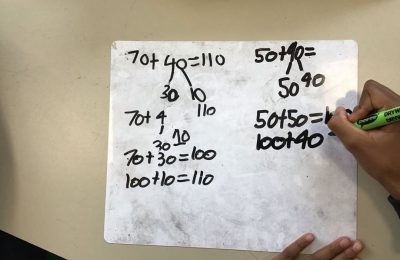 70+40=110
30 10
110
70+4
30 10
70+30=100
100+10=110
50+90=
50 40
50+50=1
100+40=